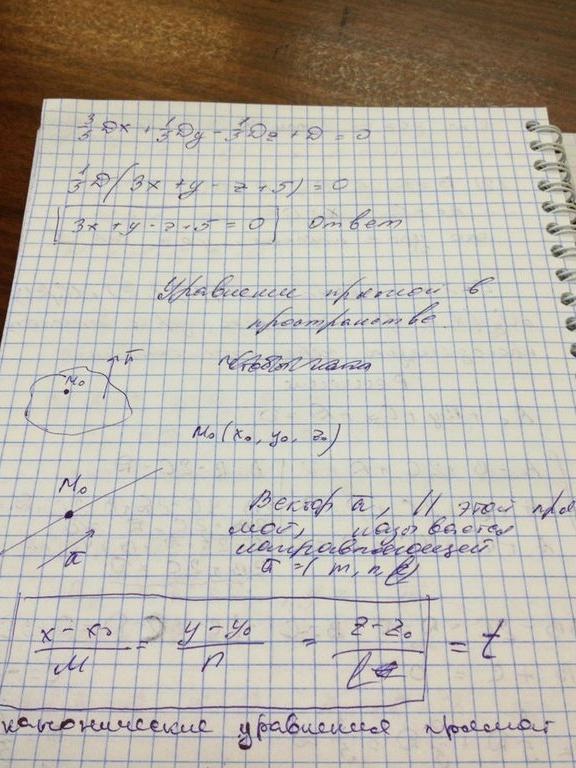 3/5 Dx + 1/5 Dy - 1/5 Dz + D = 0
1/5 D(3x + y - z + 5) = 0
[3x + y - z + 5 = 0] Ответ
Уравнение прямой в
пространстве.
n̄
M₀
M₀(x₀, y₀, z₀)
M₀
ā
Вектор ā, || этой пря
мой, называется
направляющей
ā = (m, n, l)
x - x₀ / m = y - y₀ / n = z - z₀ / l = t
канонические уравнения прямой